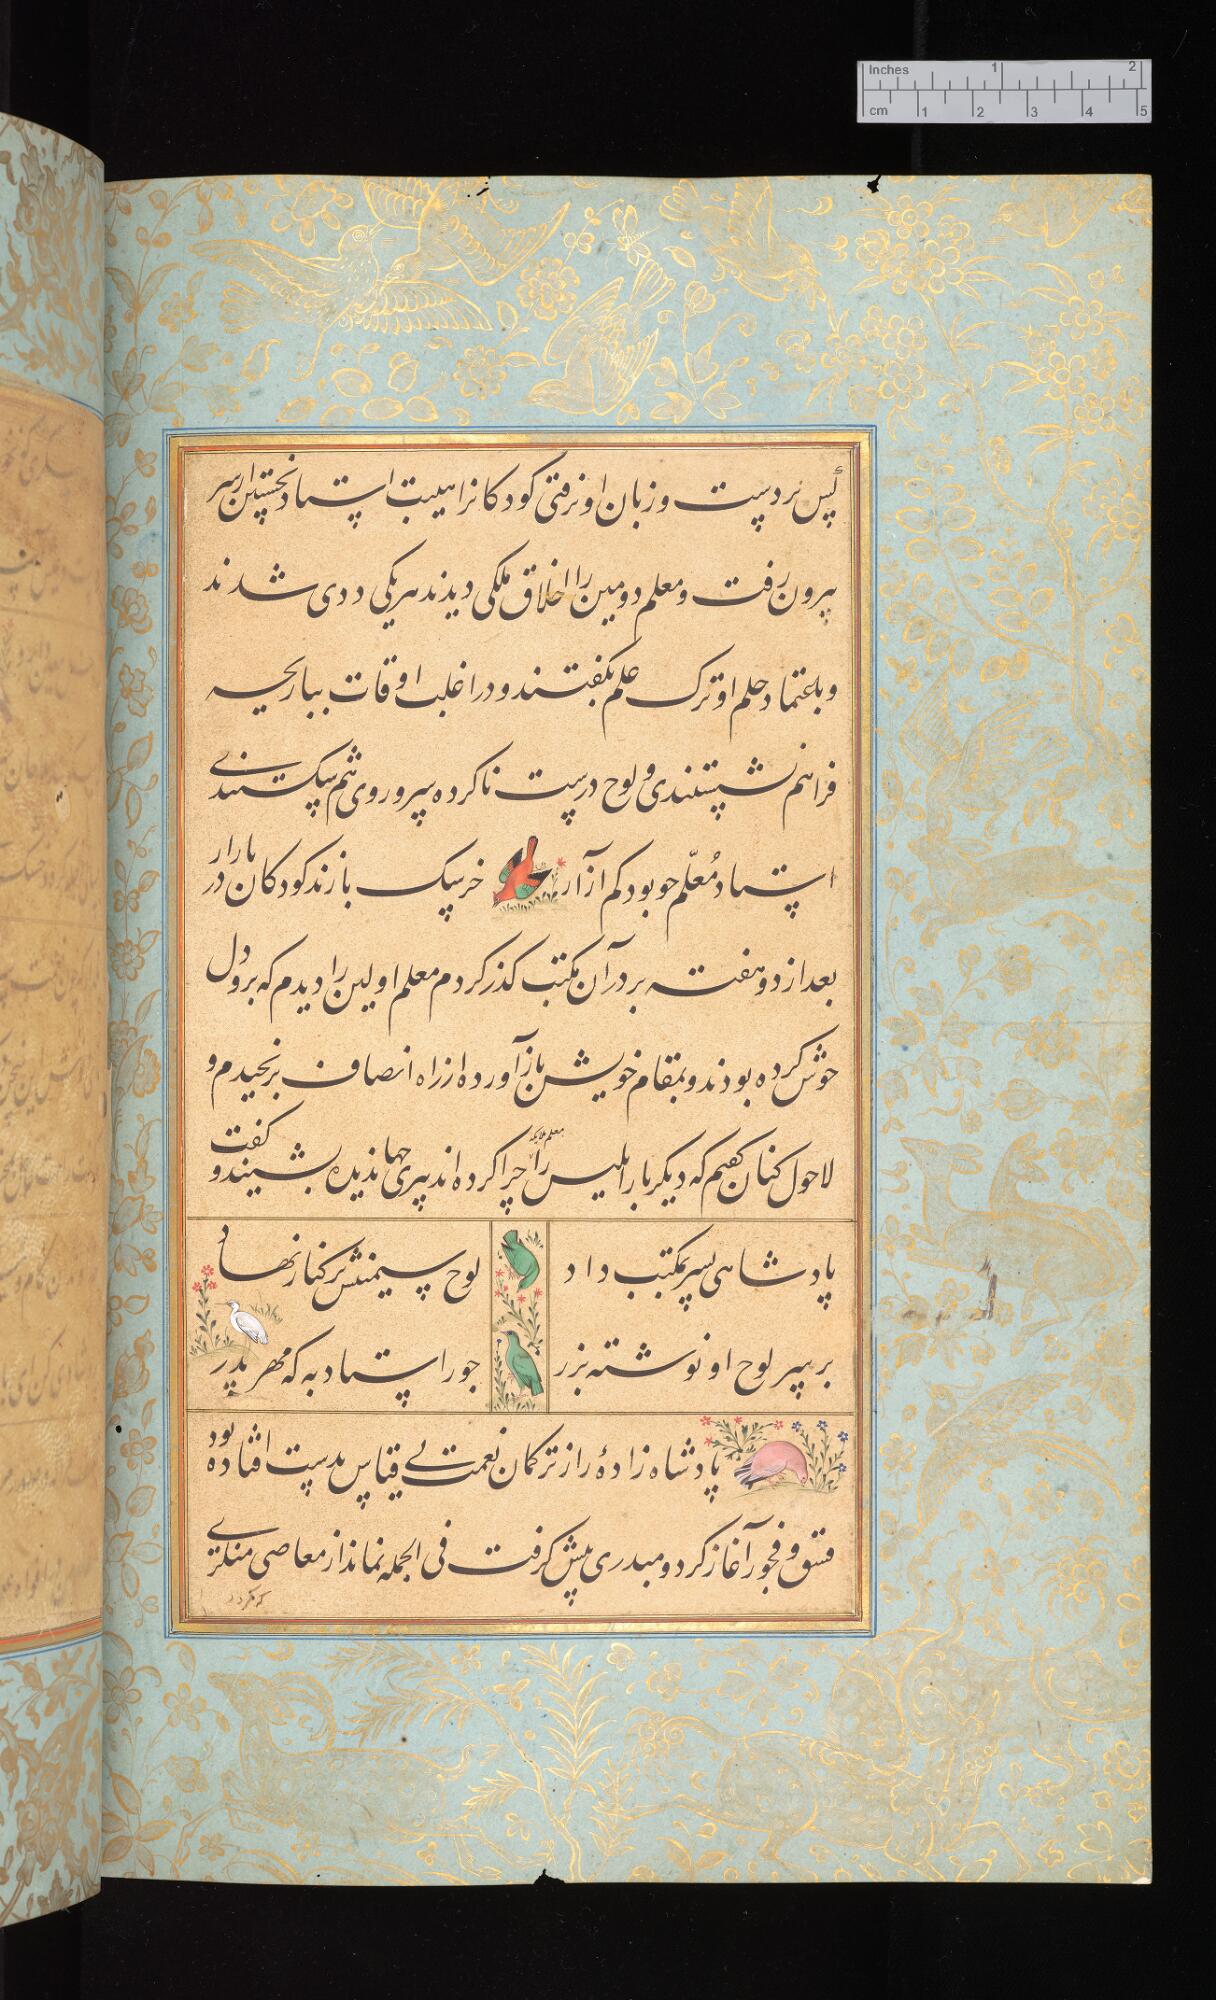 Inches 1 2
cm 1 2 3 4 5
پس بر دست و زبان او نرفتی کودکانرا هیبت استاد نخستین از سر
بیرون رفت و معلم دومین را اخلاق ملکی دیدند هر یکی ددی شدند
و باعتماد حلم او ترک علم بگفتند و در اغلب اوقات ببازیچه
فراهم نشستندی و لوح درست ناکرده بر روی هم شکستندی
استاد مُعلّم چو بود کم آزار خرسک بازند کودکان در بازار
بعد از دو هفته بر در آن مکتب گذر کردم معلم اولین را دیدم که برو دل
خوش کرده بودند و بمقام خویش باز آورده از راه انصاف برنجیدم و
لاحول کنان گفتم که دیگر بار ابلیس را چرا کرده اند پیری جهاندیده بشنید و گفت
معلم ملایکه
پادشاهی پسر بمکتب داد لوح سیمینش بر کنار نهاد
بر سر لوح او نوشته بزر جور استاد به که مهر پدر
پادشاه زادهٔ را از ترکمان نعمت بی قیاس بدست افتاده بود
فسق و فجور آغاز کرد و مبذری پیش گرفت فی الجمله نماند از معاصی منکری
که نکرد